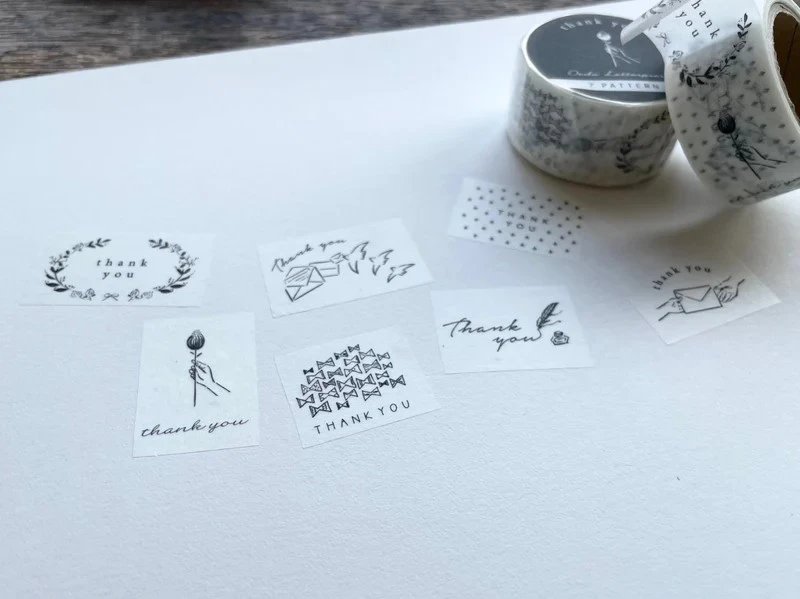 thank you
Oeda Letterpress
7 PATTERN
thank
you
thank
you
Thank you
THANK
YOU
thank you
thank you
THANK YOU
Thank
you